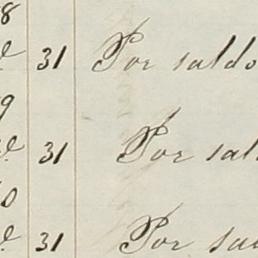 8
31 Por saldo
9
31 Por sal
0
31 Por sal